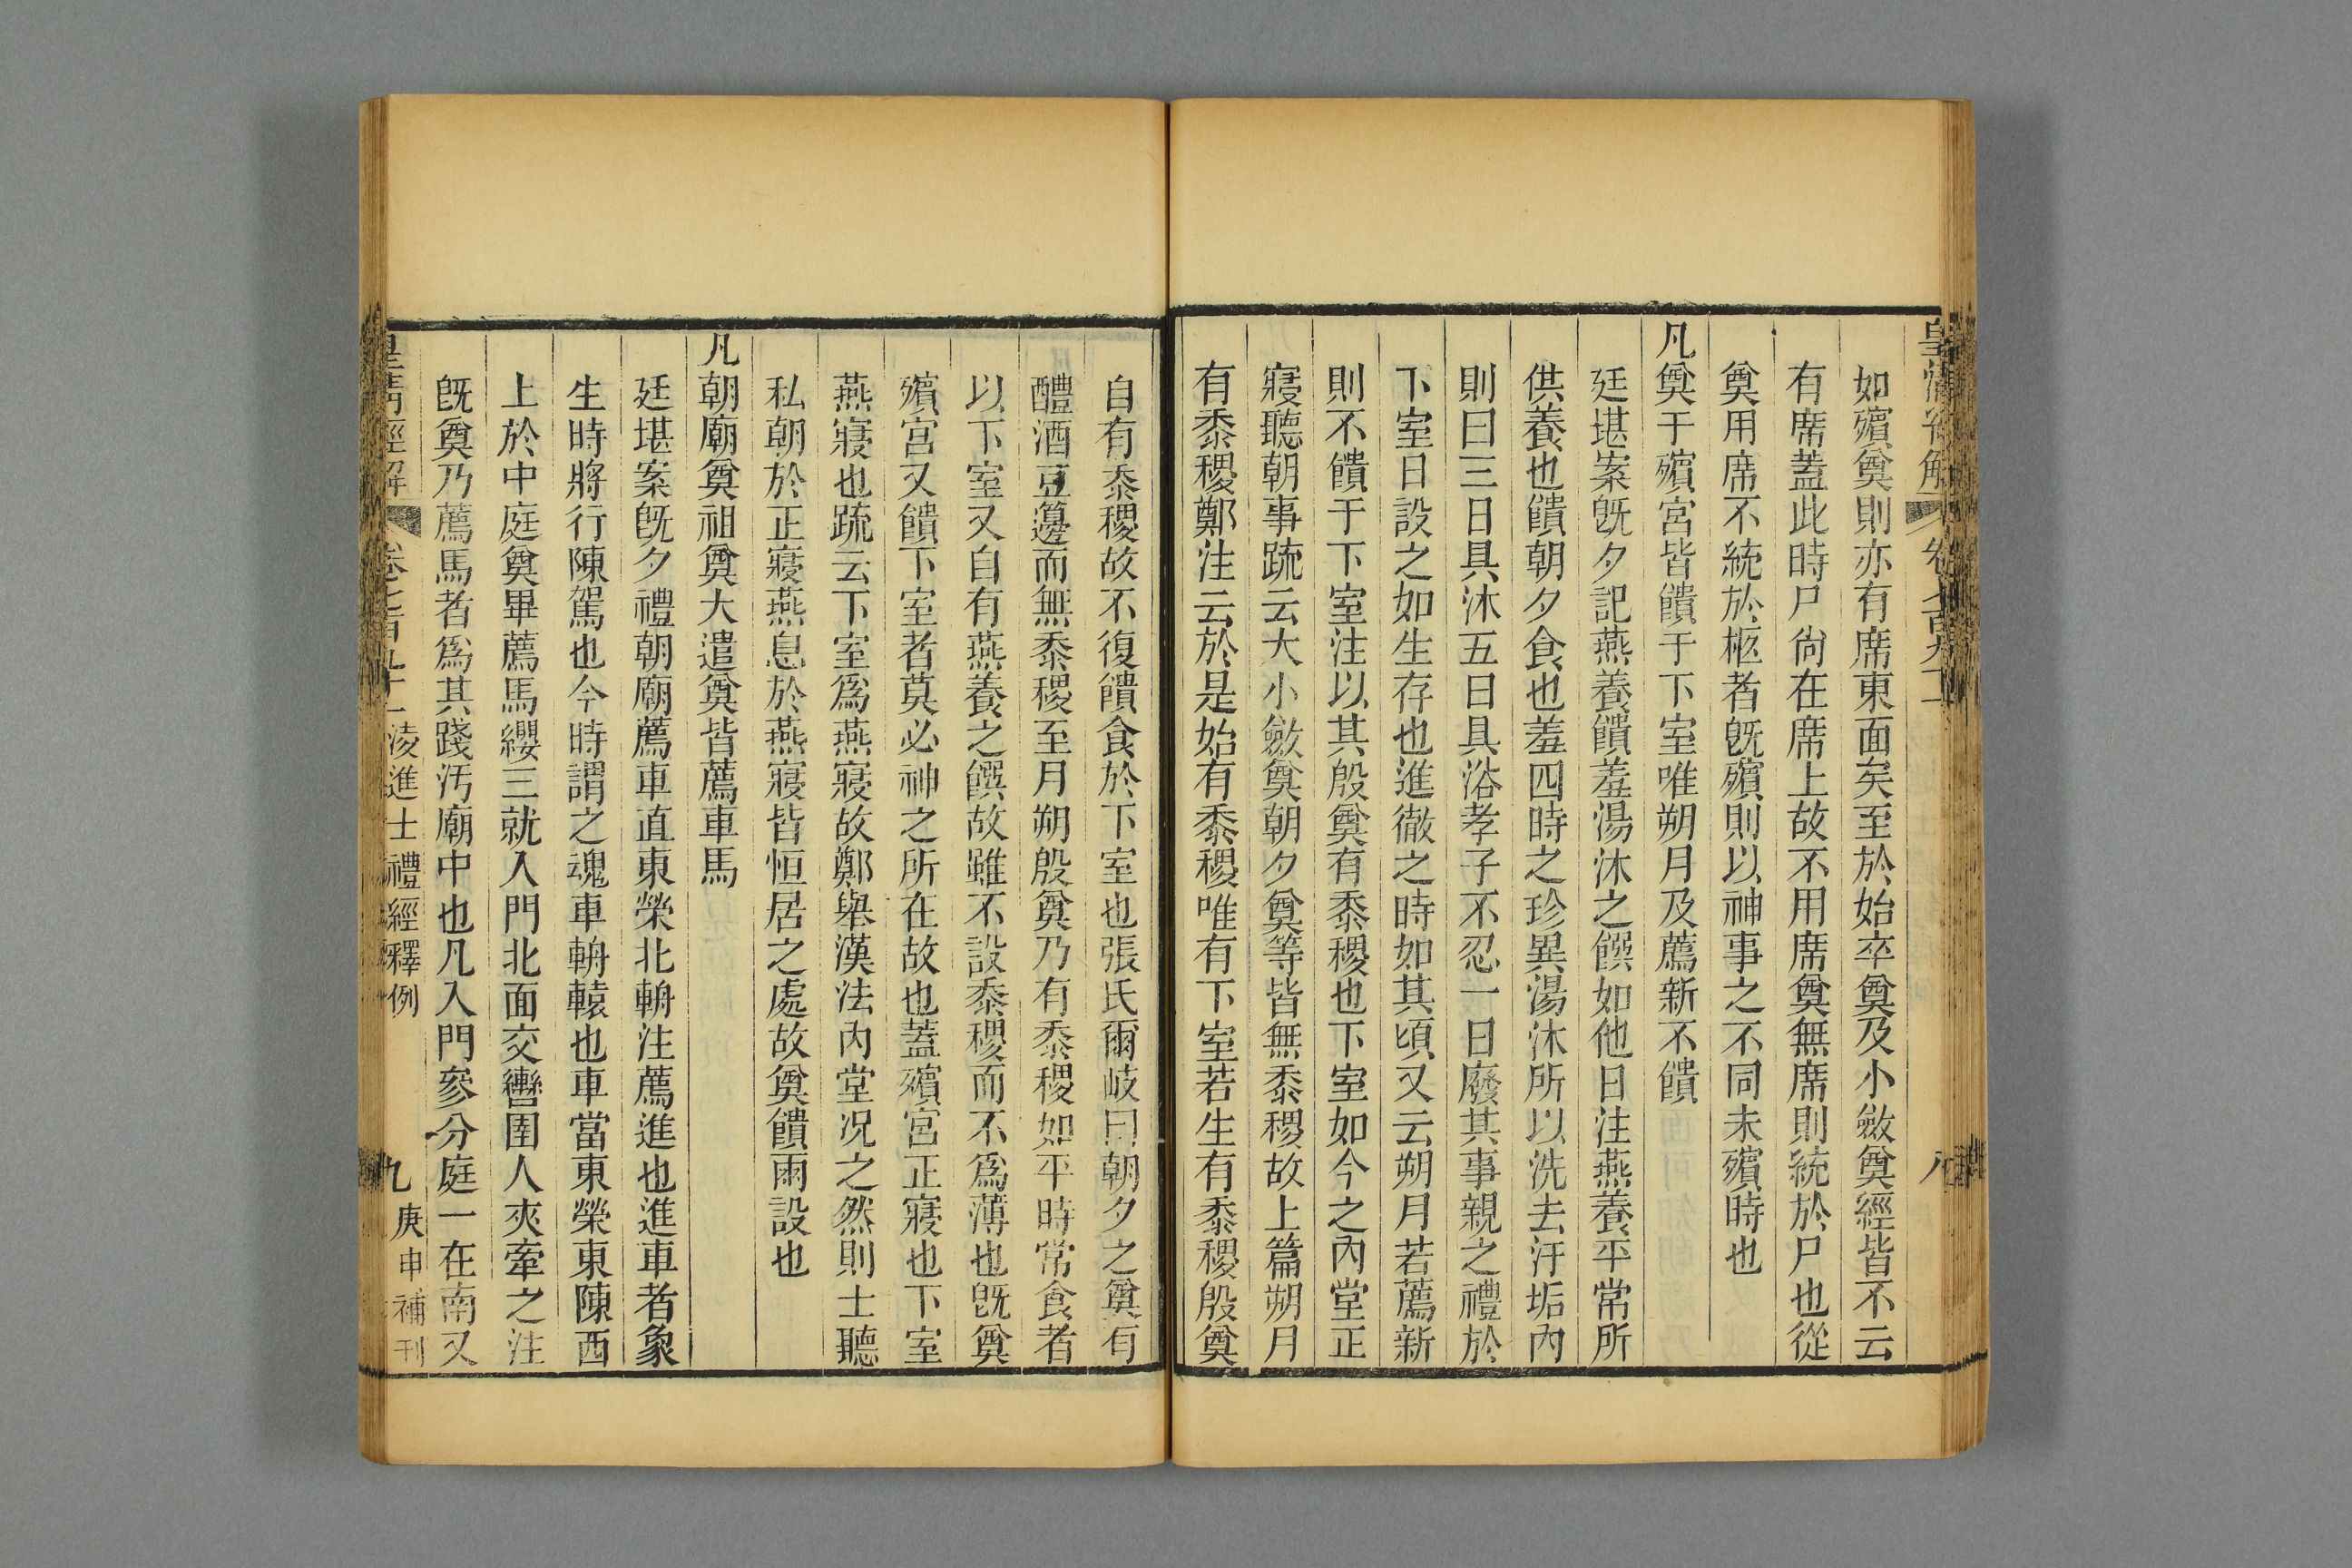 如殯奠則亦有席東面矣至於始卒奠及小斂奠經皆不云
有席蓋此時尸尙在席上故不用席奠無席則統於尸也從
奠用席不統於柩者旣殯則以神事之不同未殯時也
凡奠于殯宮皆饋于下室唯朔月及薦新不饋
廷堪案旣夕記燕養饋羞湯沐之饌如他日注燕養平常所
供養也饋朝夕食也羞四時之珍異湯沐所以洗去汙垢內
則曰三日具沐五日具浴孝子不忍一日廢其事親之禮於
下室日設之如生存也進徹之時如其頃又云朔月若薦新
則不饋于下室注以其殷奠有黍稷也下室如今之內堂正
寢聽朝事疏云大小斂奠朝夕奠等皆無黍稷故上篇朔月
有黍稷鄭注云於是始有黍稷唯有下室若生有黍稷殷奠
自有黍稷故不復饋食於下室也張氏爾岐曰朝夕之奠有
醴酒豆籩而無黍稷至月朔殷奠乃有黍稷如平時常食者
以下室又自有燕養之饌故雖不設黍稷而不爲薄也旣奠
殯宮又饋下室者莫必神之所在故也蓋殯宮正寢也下室
燕寢也疏云下室爲燕寢故鄭舉漢法內堂况之然則士聽
私朝於正寢燕息於燕寢皆恒居之處故奠饋兩設也
凡朝廟奠祖奠大遣奠皆薦車馬
廷堪案旣夕禮朝廟薦車直東榮北輈注薦進也進車者象
生時將行陳駕也今時謂之魂車輈轅也車當東榮東陳西
上於中庭奠畢薦馬纓三就入門北面交轡圉人夾牽之注
旣奠乃薦馬者爲其踐汚廟中也凡入門參分庭一在南又
皇淸經解 卷七百九十一 淩進士禮經釋例 九 庚申補刊